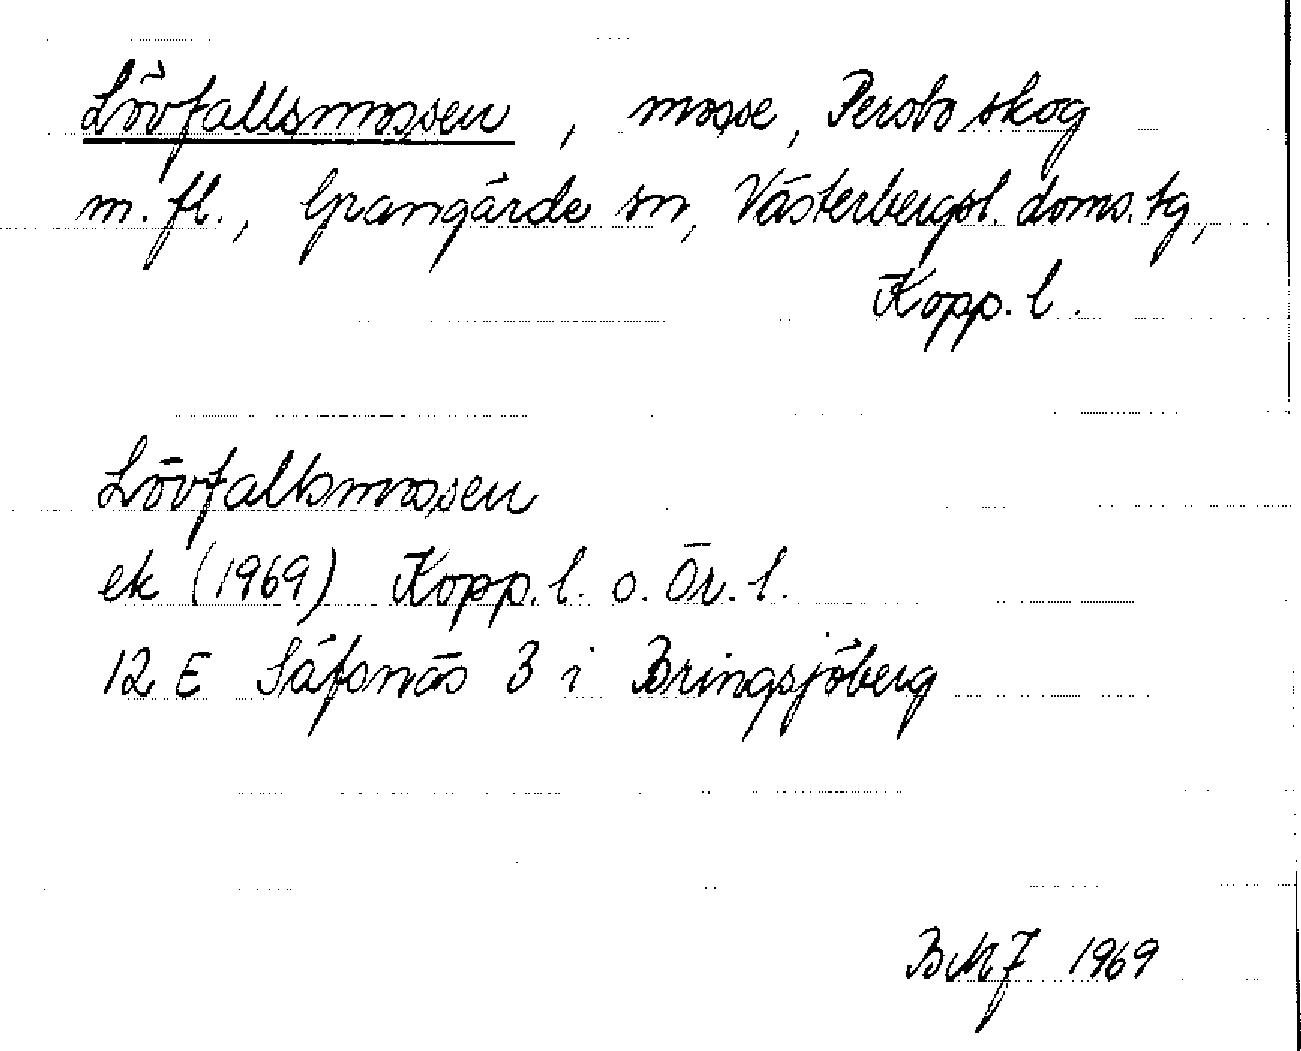 Lövfallsmossen, mosse, Persbo skog
m. fl., Grangärde sn, Västerbergsl. doms. tg,
Kopp. l.
Lövfallsmossen
ek (1969) Kopp. l. o. Ör. l.
12 E Säfsnäs 3 i Bringsjöberg
BMJ 1969